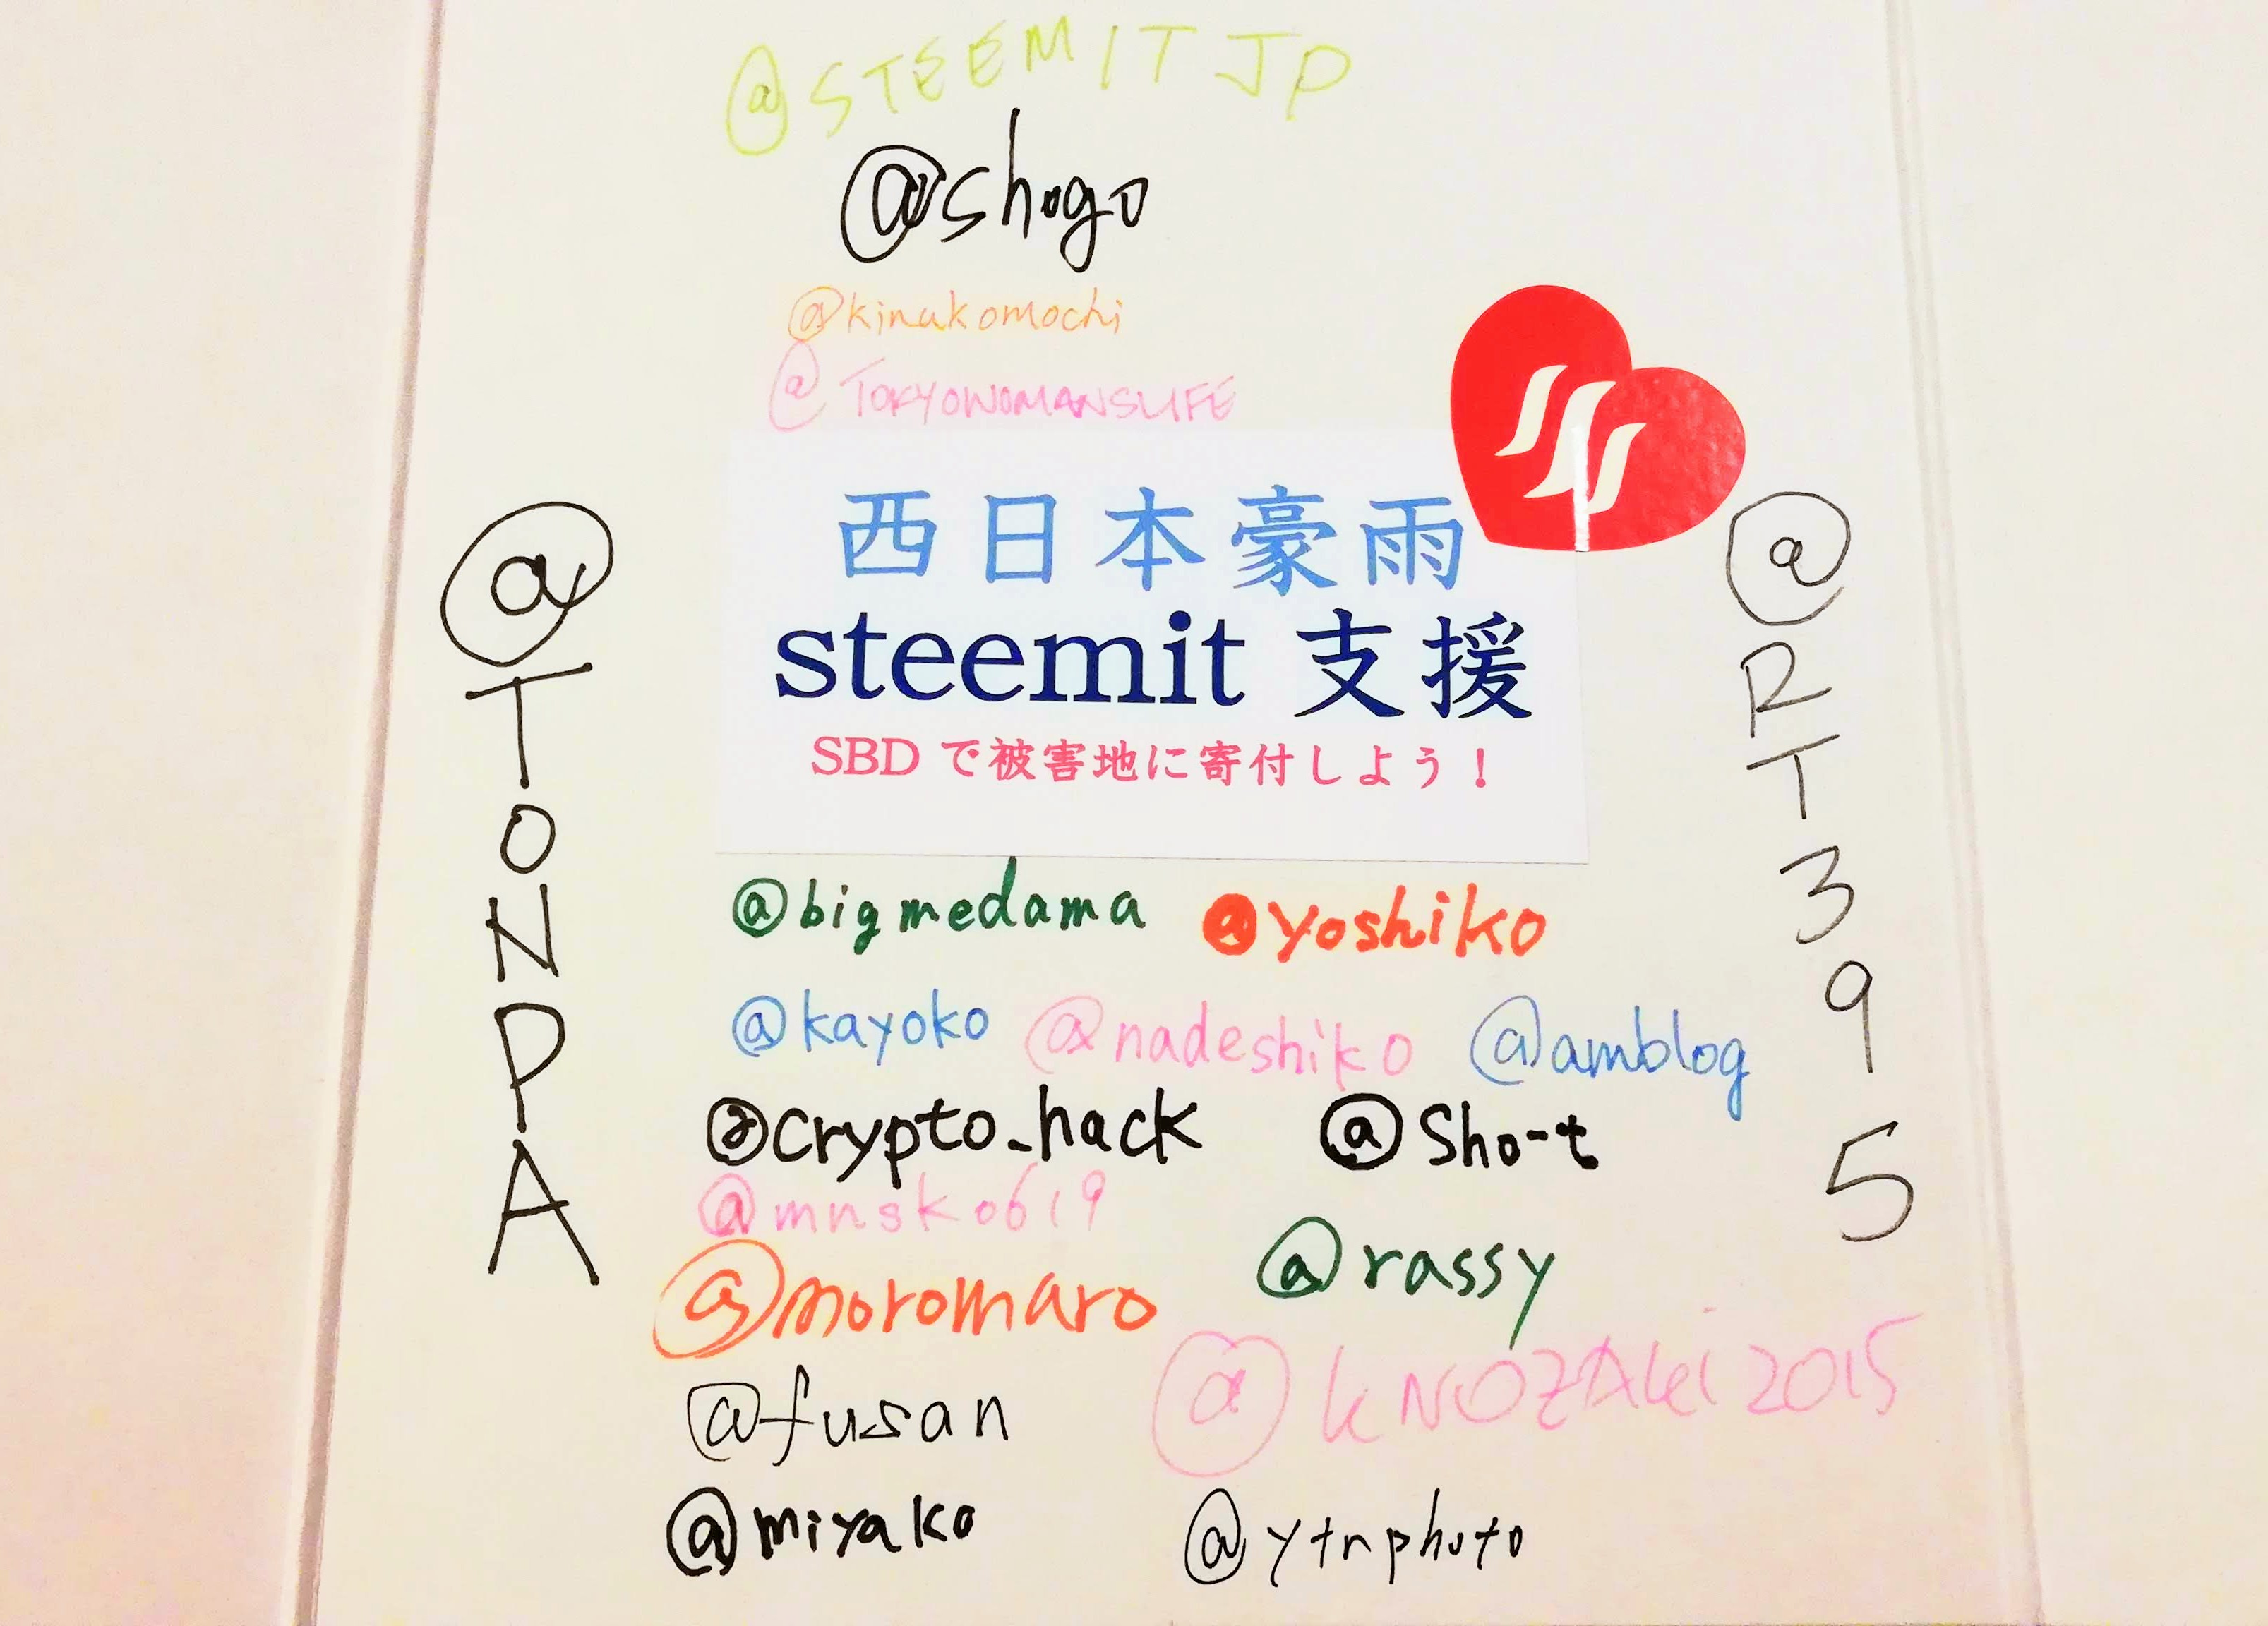 @STEEMITJP
@shogo
@kinakomochi
@TOKYOWOMANSLIFE
西日本豪雨
steemit 支援
SBDで被害地に寄付しよう！
@TONPA
@RT395
@bigmedama @yoshiko
@kayoko @nadeshiko @amblog
@crypto_hack @sho-t
@mnsko619
@rassy
@noromaro
@kNOZAki2015
@fusan
@miyako @ytnphoto